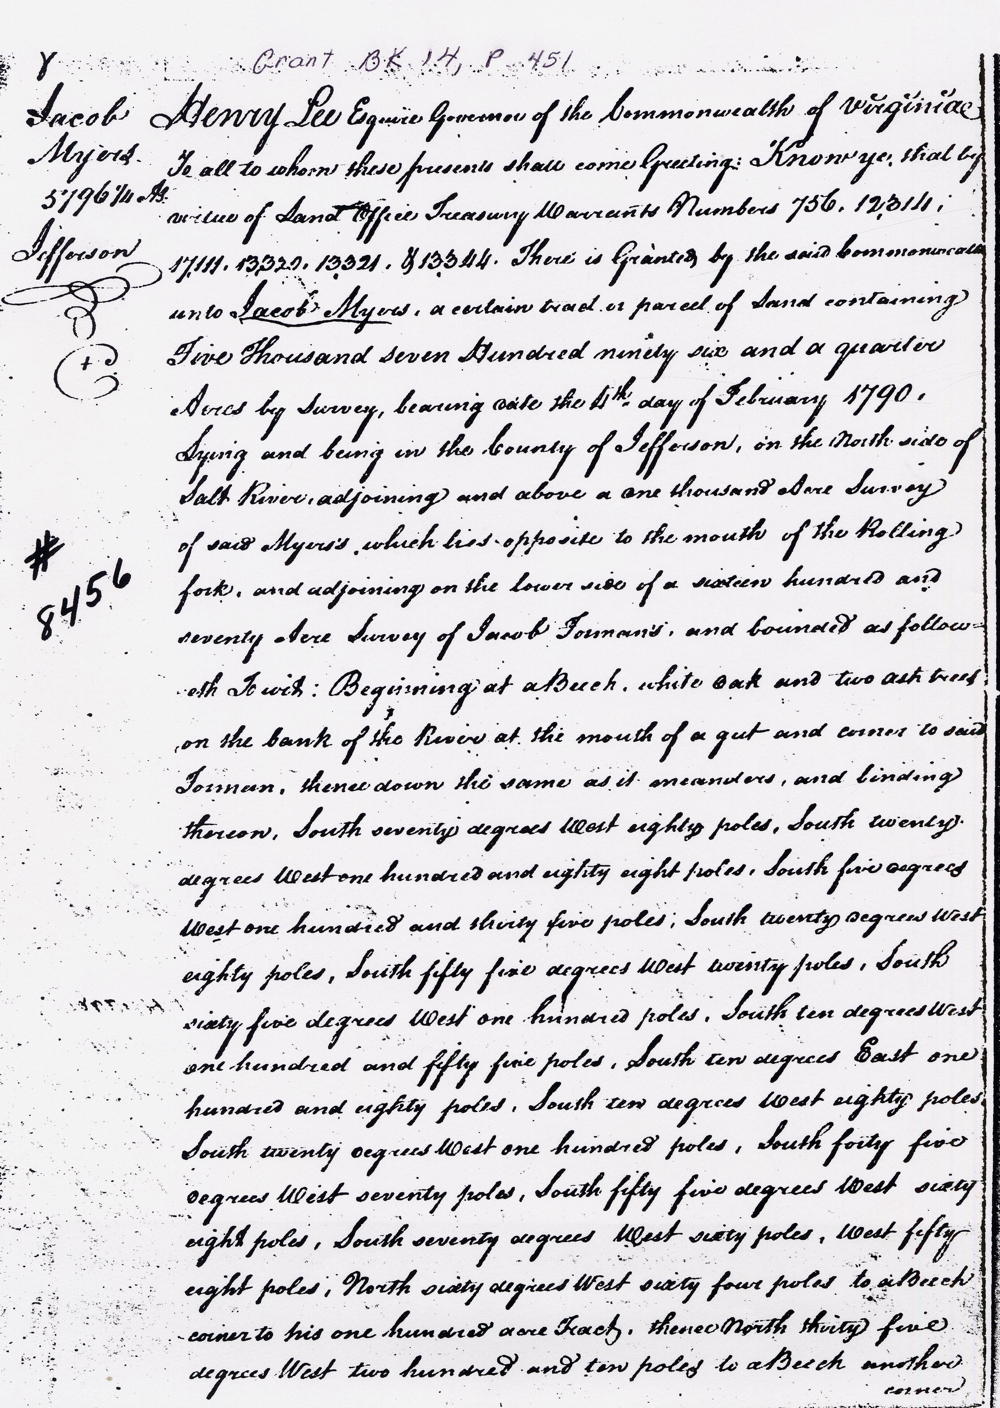 Grant BK 14, P 451
Jacob
Myers
5796 1/4 As.
Jefferson
#
8456
Henry Lee Esquire Governor of the Commonwealth of Virginia
To all to whom these presents shall come Greeting: Know ye, that by
virtue of Land Office Treasury Warrants Numbers 756. 12314,
17111. 13320. 13321. & 13344. There is Granted by the said Commonwealth
unto Jacob Myers, a certain tract or parcel of Land containing
Five Thousand seven Hundred ninety six and a quarter
Acres by Survey, bearing date the 4th day of February 1790.
Lying and being in the County of Jefferson, on the North side of
Salt River, adjoining and above a one thousand Acre Survey
of said Myers's which lies opposite to the mouth of the Rolling
fork, and adjoining on the lower side of a sixteen hundred and
seventy Acre Survey of Jacob Forman's, and bounded as follow=
eth To wit: Beginning at a Beech, white oak and two ash trees
on the bank of the River at the mouth of a gut and corner to said
Forman, thence down the same as it meanders, and binding
thereon, South seventy degrees West eighty poles, South twenty
degrees West one hundred and eighty eight poles, South five degrees
West one hundred and thirty five poles, South twenty degrees West
eighty poles, South fifty five degrees West twenty poles, South
sixty five degrees West one hundred poles, South ten degrees West
one hundred and fifty five poles, South ten degrees East one
hundred and eighty poles, South ten degrees West eighty poles
South twenty degrees West one hundred poles, South forty five
degrees West seventy poles, South fifty five degrees West sixty
eight poles, South seventy degrees West sixty poles, West fifty
eight poles, North sixty degrees West sixty four poles to a Beech
corner to his one hundred acre Tract, thence North thirty five
degrees West two hundred and ten poles to a Beech another
corner